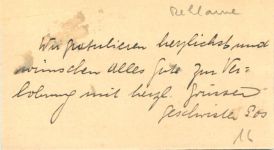 Reklame
Wir gratulieren herzlichst und
wünschen Alles Gute zur Ver-
lobung mit herzl. Grüssen
Geschwister
16